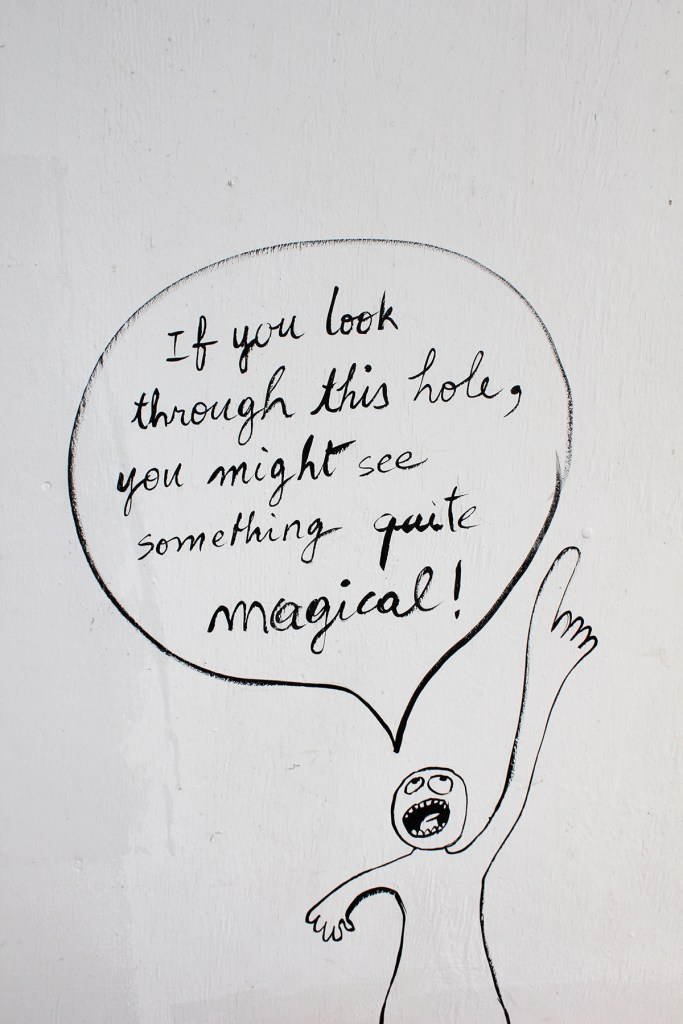 If you look
through this hole,
you might see
something quite
magical!